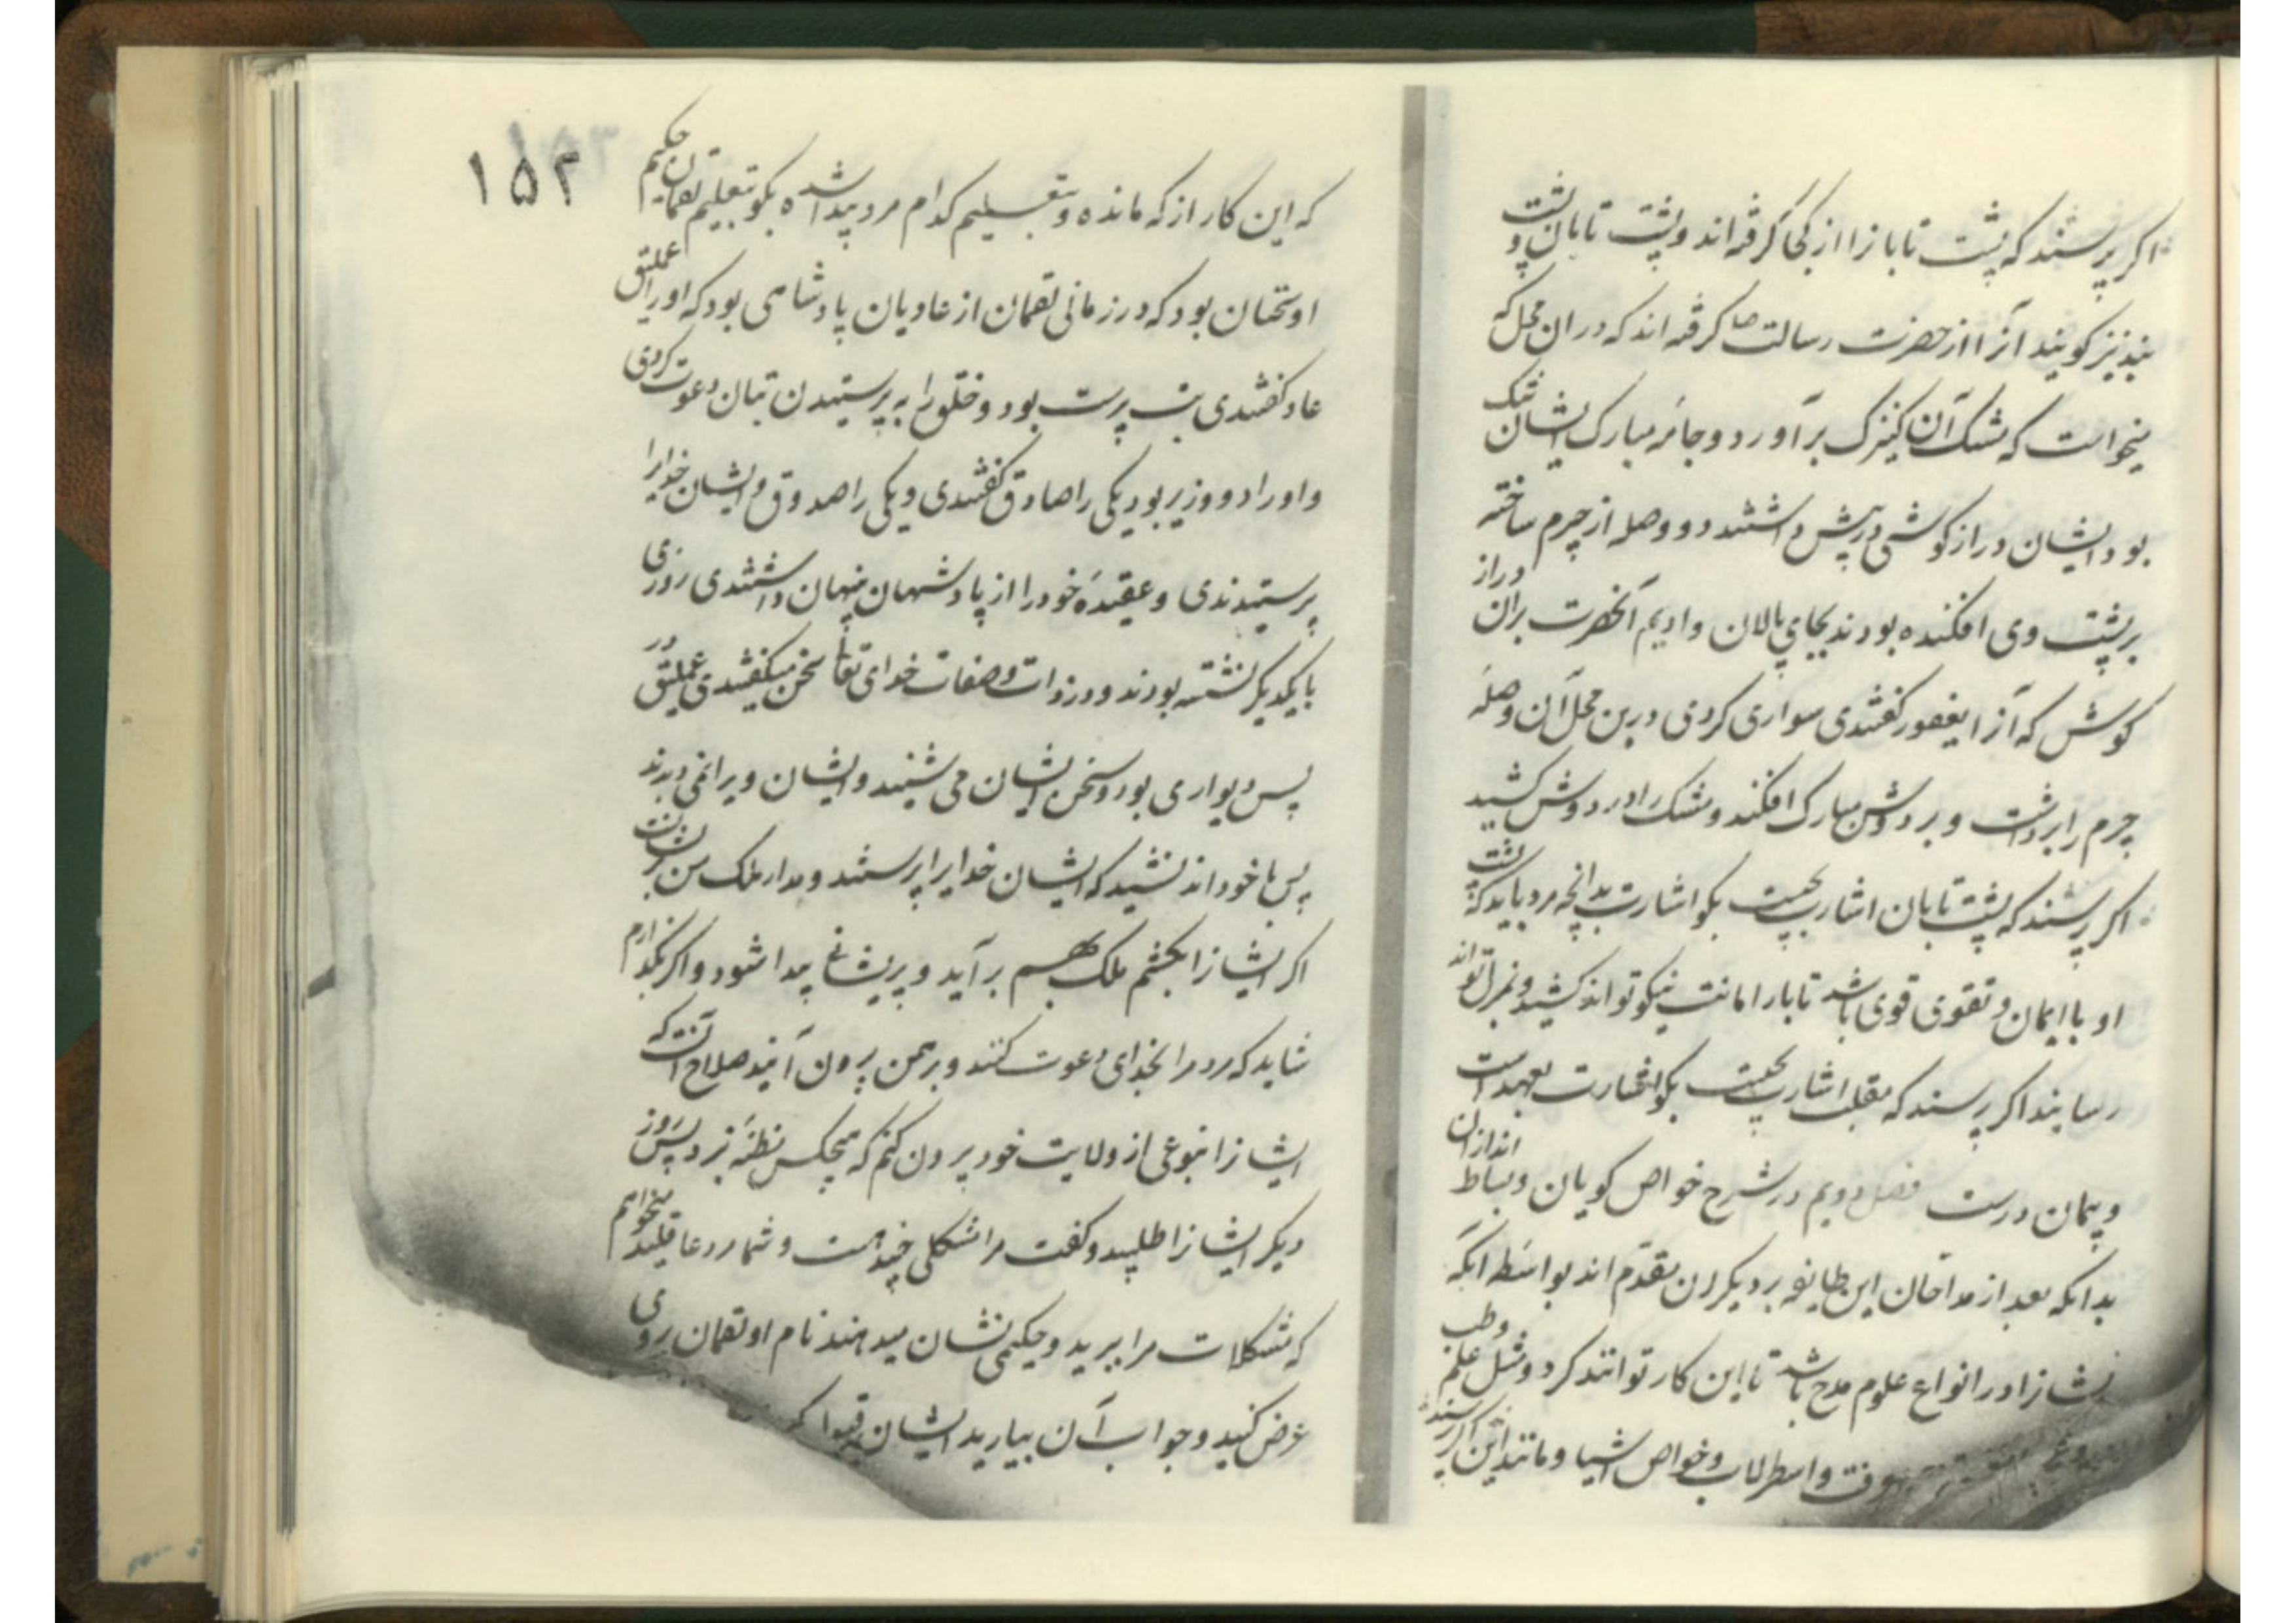 اگر پرسند که پشت تابانرا از کجا گرفته‌اند و پشت تابان و پشت
بند نیز گویند آنرا از حضرت رسالت ص گرفته‌اند که در آن محل که
میخواست که مشک آن کنیزک بر آورد و جامه مبارک ایشان تنک
بود و ایشان دراز گوشی در پیش داشتند دو وصله از چرم ساخته
بر پشت وی افکنده بودند بجای پالان و ادیم آنحضرت بران دراز
گوش که آنرا یعفور گفتندی سواری کردی درین محل آن وصله
چرم را برداشت و بر دوش مبارک افکند و مشک را در دوش کشید
اگر پرسند که پشت تابان اشارت بچیست بگو اشارت بدانچه مرد باید که پشت
او با ایمان و تقوی قوی باشد تا بار امانت نیکو تواند کشید و بمنزل تواند
رسانید اگر پرسند که مقلب اشارت بچیست بگو اشارت بعهد است
و پیمان درست فصل دویم در شرح خواص گویان و بساط اندازان
بدانکه بعد از مداحان این طایفه بر دیگران مقدم‌اند بواسطه آنکه
ایشانرا در انواع علوم مدخل باشد تا این کار توانند کرد و مثل علم و طب
و اسطرلاب و خواص اشیا و مانند این اگر پرسند
۱۵۲
که این کار از که مانده و بتعلیم کدام مرد پیدا شده بگو بتعلیم لقمان حکیم
او نخست آن بود که در زمانی لقمان از عادیان پادشاهی بود که او را عملیق
عاد گفتندی بت پرست بود و خلق را به پرستیدن بتان دعوت کردی
و او را دو وزیر بود یکی را صادق گفتندی و یکی را صدوق و ایشان خدایرا
پرستیدندی و عقیده خود را از پادشهان پنهان داشتندی روزی
با یکدیگر نشسته بودند و در ذات و صفات خدای تعا سخن میگفتندی عملیق در
پس دیواری بود و سخن ایشان می شنید و ایشان ویرا نمی دیدند
پس با خود اندیشید که ایشان خدایرا پرستند و مدار ملک من بر ایشانست
اگر ایشانرا بکشم ملک بهم بر آید و پریشانی پیدا شود و اگر بگذارم
شاید که مردمرا بخدای دعوت کنند و بر من بیرون آیند صلاح آنست که
ایشانرا بنوعی از ولایت خود بیرون کنم که هیچکس بظنه نبرد پس روز
دیگر ایشانرا طلبید و گفت مرا مشکلی چند است و شما مرد عاقلید میخواهم
که مشکلات مرا ببرید و حکیمی نشان میدهند نام او لقمان بروی
عرض کنید و جواب آن بیارید ایشان قبول کردند